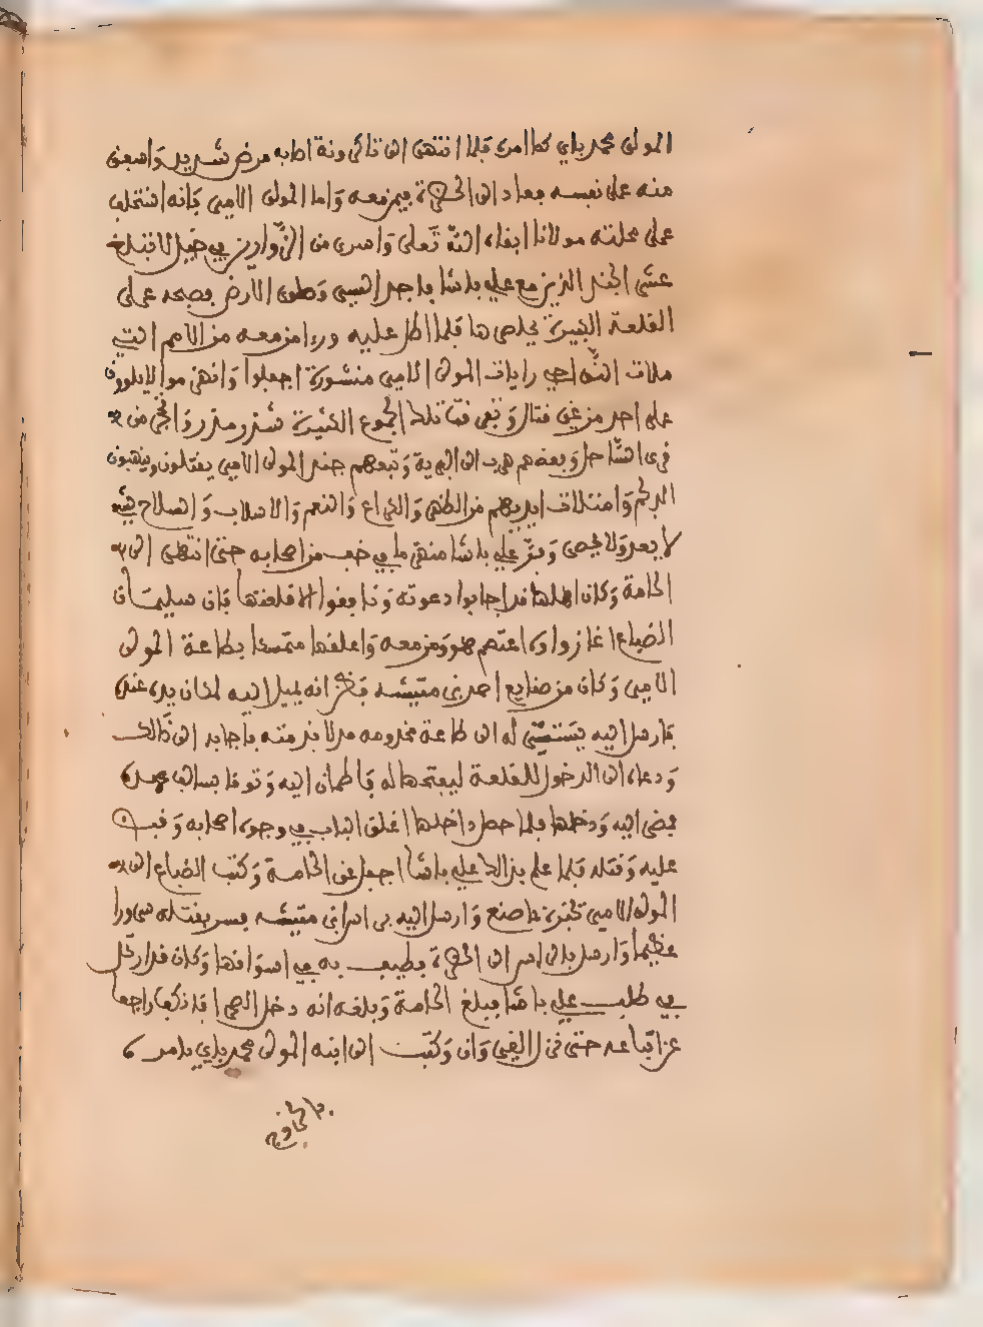 المولى محمد باي كما امره فلما انتهى الى تاكرونة اصابه مرض شديد واشفق
منه على نفسه فعاد الى الحضرة فيمن معه واما المولى الامير فانه استخلف
على محلته مولانا ابقاه الله تعالى واسرى من الزوارين في خيل لا تبلغ
عشر الجند الذين مع علي باشا فاجد السير وطوى الارض فصبحه على
القلعة الكبيرة يحاصرها فلما اطل عليه وراء من معه من الامم التي
ملات النواحي رايات المولى الامير منشورة اجفلوا وانهزموا لا يلوون
على احد من غير قتال وبقي فتات تلك الجموع الكثيرة شذر مذر وانحجز من
قرى الساحل وبعضهم هرب الى البرية وتبعهم جند المولى الامير يقتلون وينهبون
اثرهم وامتلات ايديهم من الظهر والكراع والنعم والاسلاب والسلاح بشيء
لا يعد ولا يحصى وفر علي باشا منهزما في خف من اصحابه حتى انتهى الى
الحامة وكان اهلها قد اجابوا دعوته وتابعوا الا قلعتها فان سليمان
الصباع انحاز واجماعتهم هو ومن معه واغلقها متمسكا بطاعة المولى
الامير وكان من صنايع احمد بن متيشه فظن انه يميل اليه لمكان يده عنده
فارسل اليه يستميل له الى طاعة مخدومه مولاه بذمته فاجابه الى ذالك
ودعاه الى الدخول للقلعة ليسلمها له فاطمان اليه وتوقا بسالف عهده
فمضى اليه ودخلها فلما حصل داخلها اغلق الباب في وجوه اصحابه وقبض
عليه وقتله فلما علم بذالك علي باشا اجفل عن الحامة وكتب الصباع الى
المولى الامير يخبره بما صنع وارسل اليه براس ابن متيشه فسر بقتله سرورا
عظيما وارسل بالراس الى الحضرة فطيف به في اسواقها وكان قد ارتحل
في طلب علي باشا فبلغ الحامة وبلغه انه دخل الصحرا فانكفا راجعا
عن اتباعه حتى نزل القيروان وكتب الى ابنه المولى محمد باي يامره
بالخروج